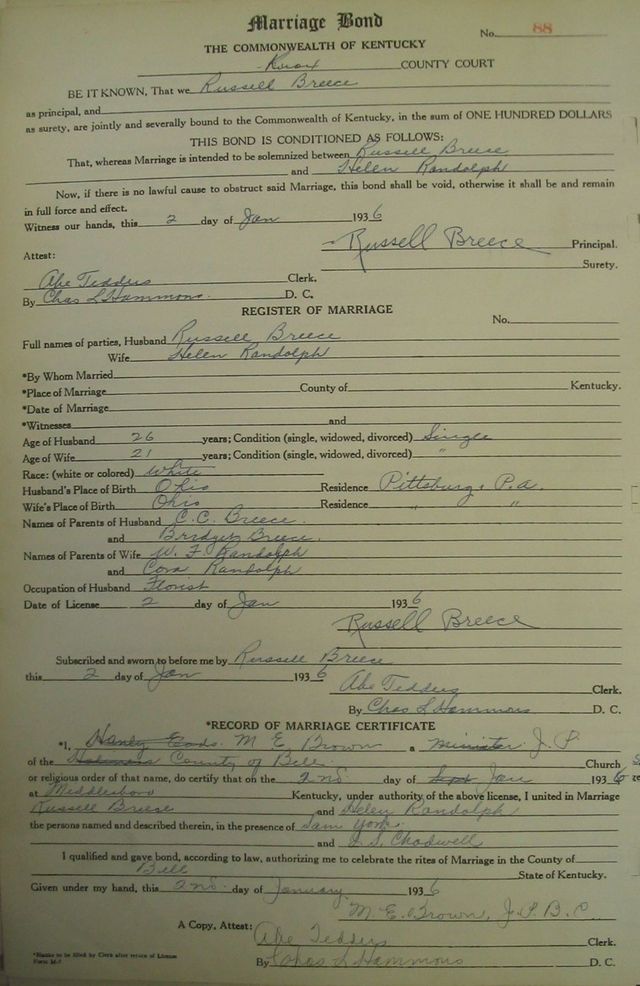 Marriage Bond
No. 88
THE COMMONWEALTH OF KENTUCKY
Knox COUNTY COURT
BE IT KNOWN, That we Russell Breece
as principal, and
as surety, are jointly and severally bound to the Commonwealth of Kentucky, in the sum of ONE HUNDRED DOLLARS
THIS BOND IS CONDITIONED AS FOLLOWS:
That, whereas Marriage is intended to be solemnized between Russell Breece
and Helen Randolph
Now, if there is no lawful cause to obstruct said Marriage, this bond shall be void, otherwise it shall be and remain
in full force and effect.
Witness our hands, this 2 day of Jan 1936
Russell Breece Principal.
Surety.
Attest:
Abe Tedders Clerk.
By Chas L Hammons. D. C.
REGISTER OF MARRIAGE
No.
Full names of parties, Husband Russell Breece
Wife Helen Randolph
*By Whom Married
*Place of Marriage County of Kentucky.
*Date of Marriage
*Witnesses and
Age of Husband 26 years; Condition (single, widowed, divorced) Single
Age of Wife 21 years; Condition (single, widowed, divorced) "
Race: (white or colored) White
Husband's Place of Birth Ohio Residence Pittsburg, Pa.
Wife's Place of Birth Ohio Residence " "
Names of Parents of Husband C. C. Breece.
and Bridget Breece.
Names of Parents of Wife W. F. Randolph
and Cora Randolph
Occupation of Husband Florist
Date of License 2 day of Jan 1936
Russell Breece
Subscribed and sworn to before me by Russell Breece
this 2 day of Jan 1936
Abe Tedders Clerk.
By Chas L Hammons D. C.
*RECORD OF MARRIAGE CERTIFICATE
*I, M E Brown a Minister J. P.
of the County of Bell Church
or religious order of that name, do certify that on the 2nd day of Sept Jan 1936
at Middlesboro Kentucky, under authority of the above license, I united in Marriage
Russell Breece and Helen Randolph
the persons named and described therein, in the presence of Sam York
and S. Chadwell
I qualified and gave bond, according to law, authorizing me to celebrate the rites of Marriage in the County of
Bell State of Kentucky.
Given under my hand, this 2nd day of January 1936
M. E. Brown, J. P. B. C.
A Copy, Attest: Abe Tedders Clerk.
By Chas L Hammons D. C.
*Blanks to be filled by Clerk after return of License